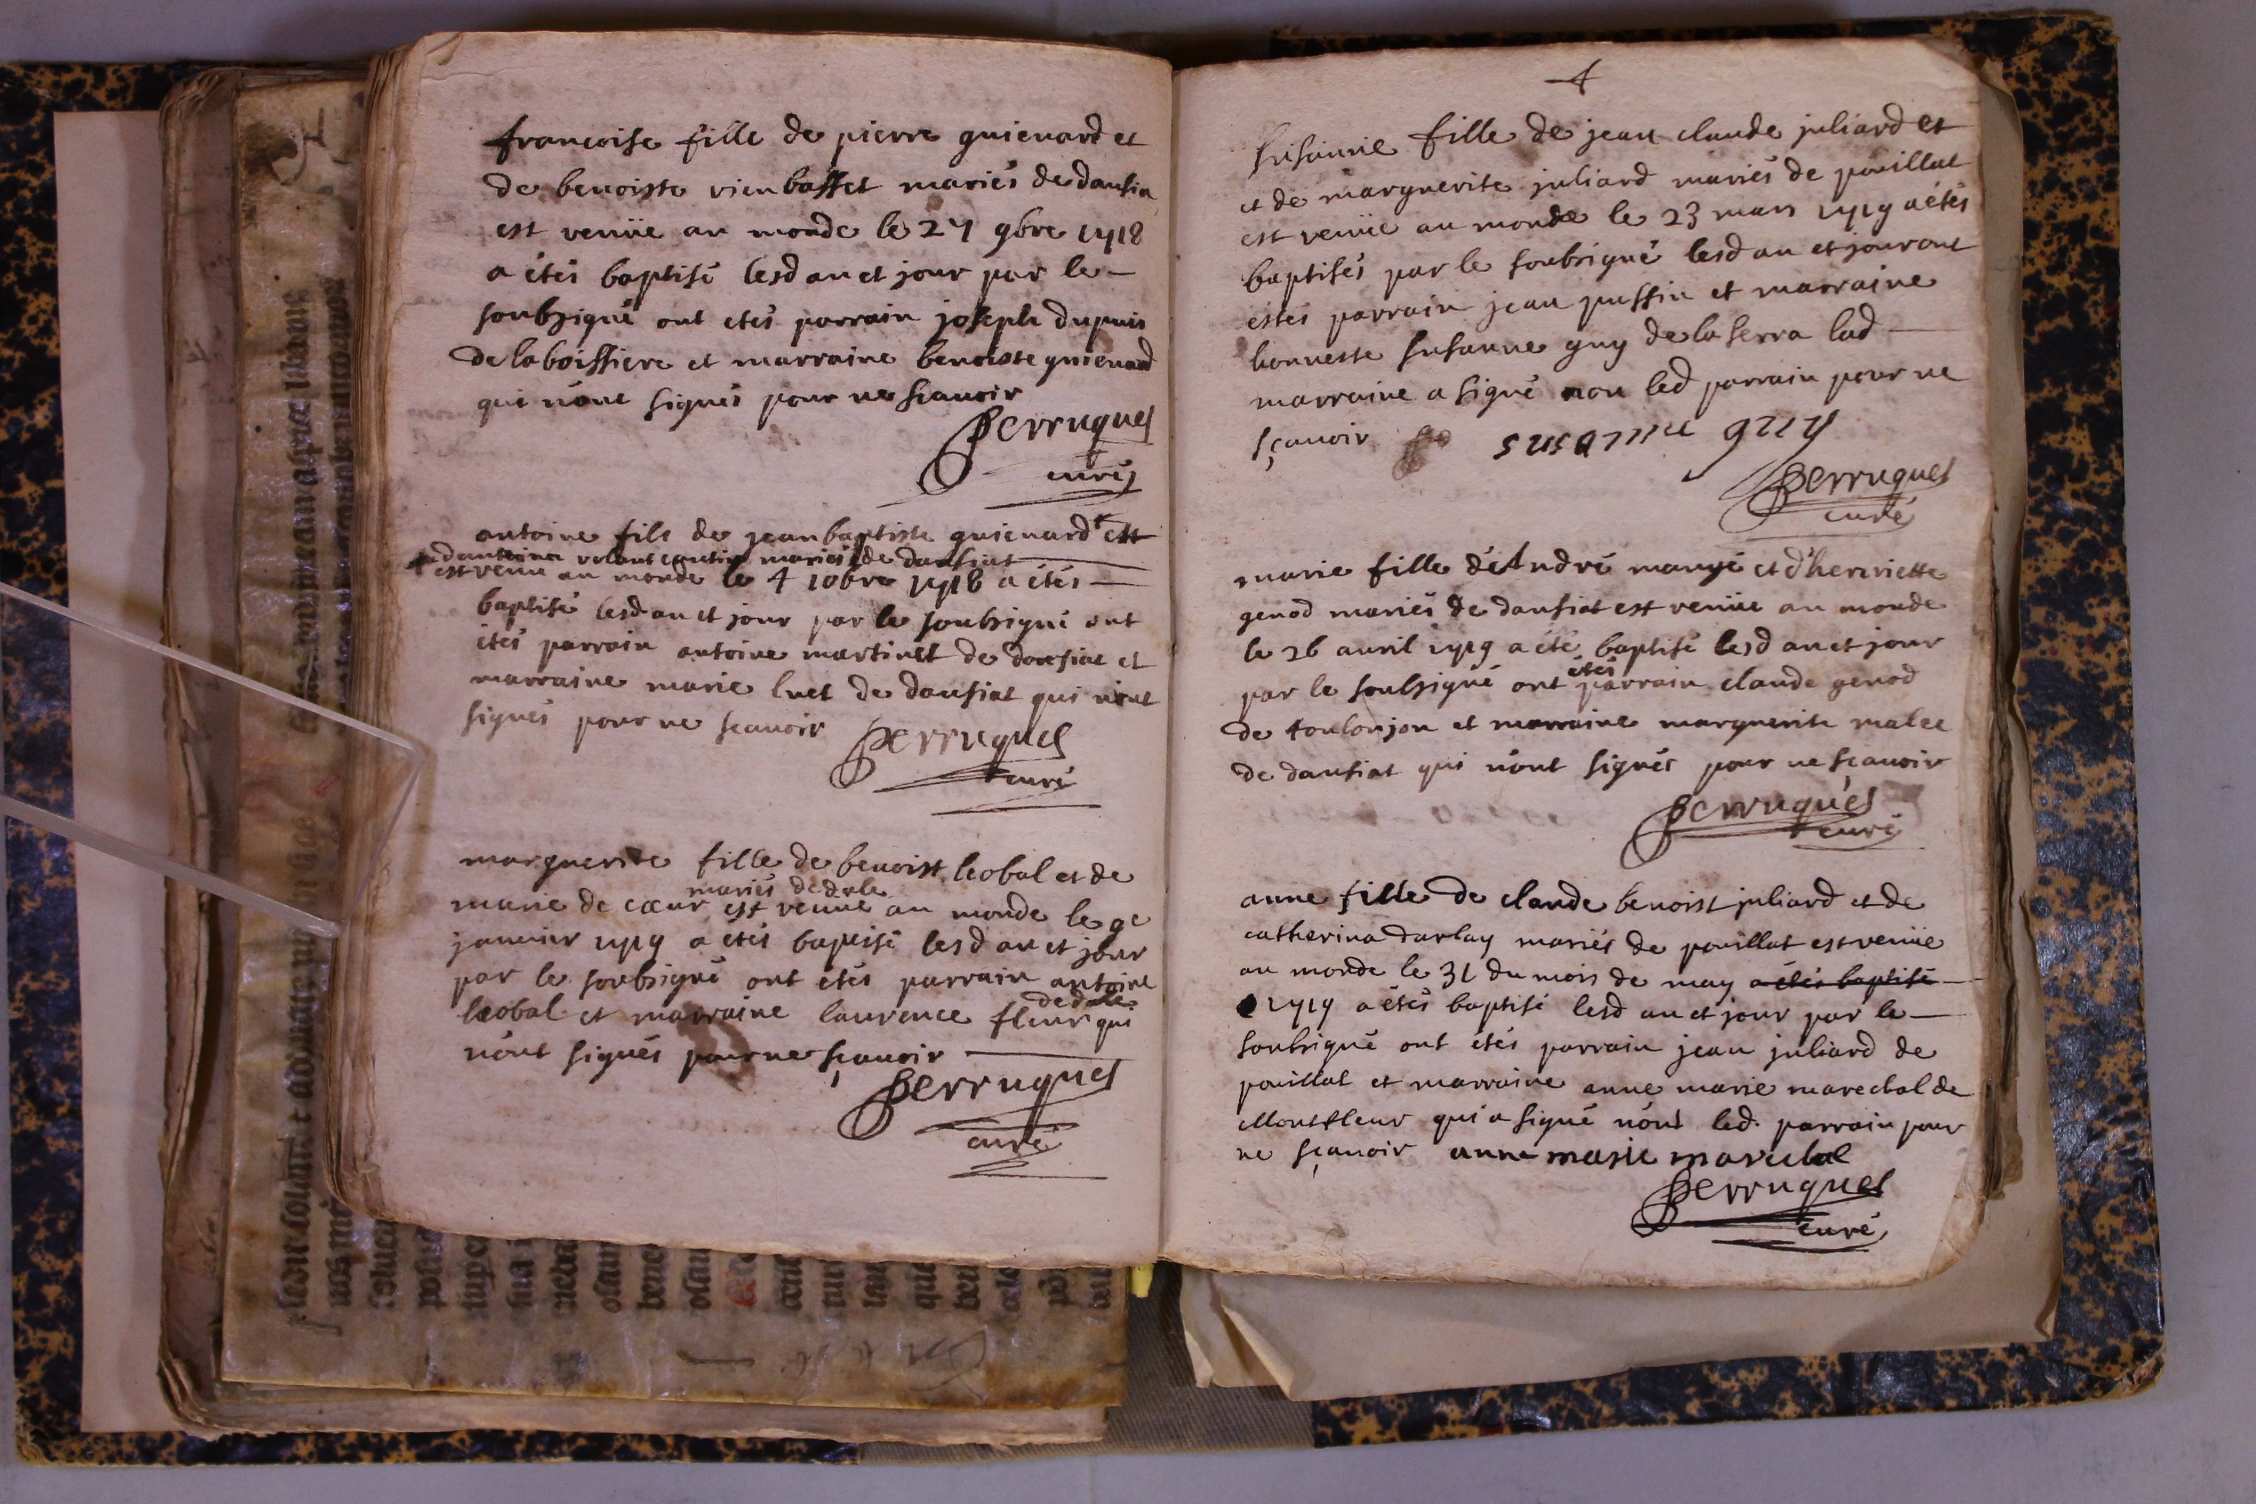 francoise fille de pierre guienard et
de benoiste vienbasset mariés de dansia
est venüe au monde le 27 9bre 1718
a étés baptisé lesd an et jour par le
soubsigné ont etés parrain joseph dupuis
de laboissiere et marraine benoiste guienard
qui nónt signés pour ne scavoir
Perruquel
curé
antoine fils de jean baptiste guienard et
dantoina volant mariés de dansiat
est venu au monde le 4 10bre 1718 a étés
baptisé lesd an et jour par le soubsigné ont
étés parrain antoine martinet de dansiat et
marraine marie luet de dansiat qui nónt
signés pour ne scavoir Perruquel
curé
marguerite fille de benoist leobal et de
mariés dedale
marie de cœur est venüe au monde le 9e
janvier 1719 a étés baptisé lesd an et jour
par le soubsigné ont étés parrain antoine
dedale
leobal et marraine laurence fleur qui
nónt signés pour ne sçavoir
Perruquel
curé
4
susanne fille de jean claude juliard et
et de marguerite juliard mariés de pouillat
est venüe au monde le 23 mars 1719 a étés
baptisés par le soubsigné lesd an et jour ont
estés parrain jean pussin et marraine
honneste susanne guy de la serra lad
marraine a signé non led parrain pour ne
sçavoir susanne guy
Perruquel
curé
marie fille d'André mangé et d'henriette
genod mariés de dansiat est venüe au monde
le 26 avril 1719 a été baptisé lesd an et jour
étés
par le soubsigné ont parrain claude genod
de toulonjon et marraine marguerite malee
de dansiat qui nónt signés pour ne sçavoir
Perruquel
curé
anne fille de claude benoist juliard et de
catherina darlay mariés de pouillat est venüe
au monde le 31 du mois de may a étés baptisé
1719 a étés baptisé lesd an et jour par le
soubsigné ont étés parrain jean juliard de
pouillat et marraine anne marie marechal de
Montfleur qui a signé nónt led. parrain pour
ne sçavoir anne marie marechal
Perruquel
curé